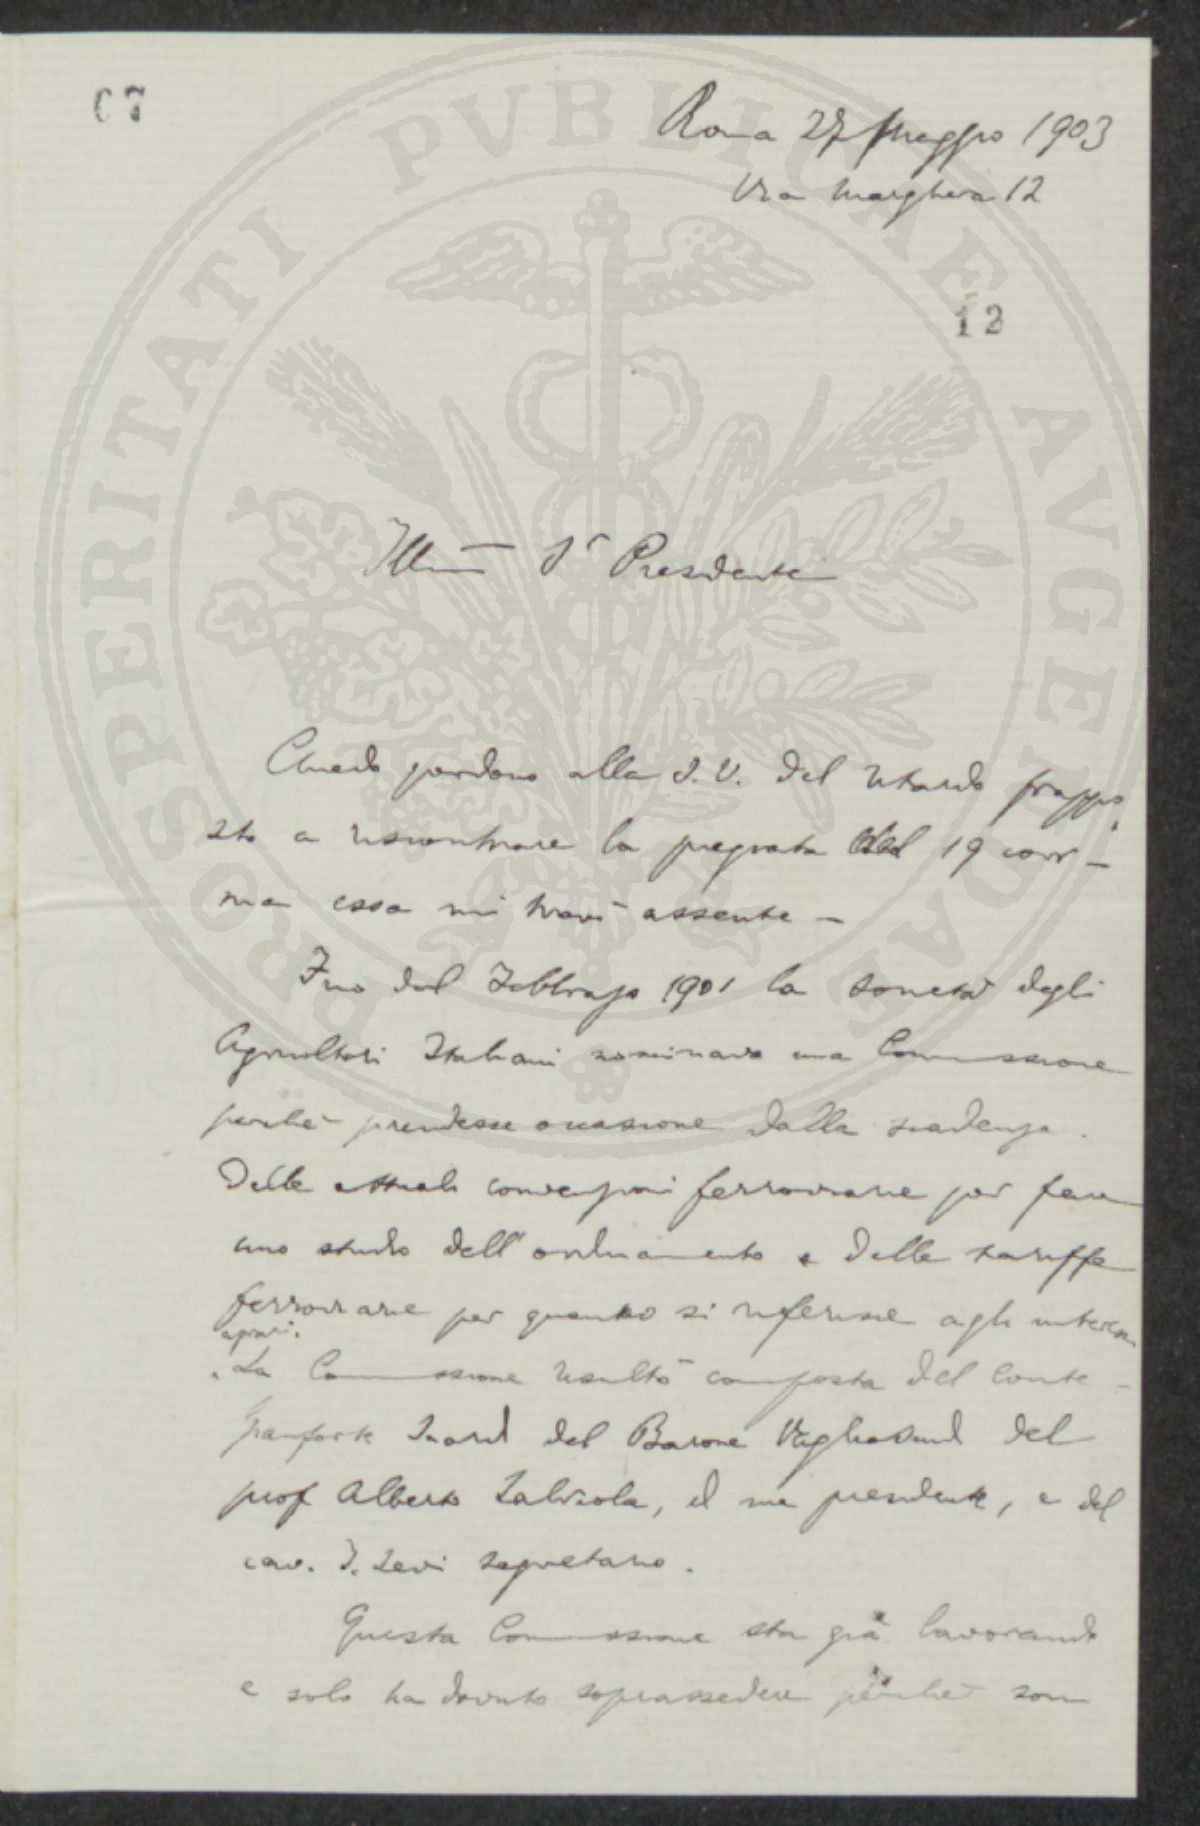 67
Roma 27 Maggio 1903
Via Marghera 12
12
Illmo Sr Presidente
Chiedo perdono alla S. V. del ritardo frappo
sto a riscontrare la pregiata del 19 corr
ma essa mi trovò assente —
Fino dal Febbrajo 1901 la società degli
Agricoltori Italiani nominava una Commissione
perchè prendesse occasione dalla scadenza
delle attuali convenzioni ferroviarie per fare
uno studio dell'ordinamento e delle tariffe
ferroviarie per quanto si riferisce agli interessi
agrari.
La Commissione resultò composta del Conte
del Barone Vagliasindi del
prof Alberto , il me presidente, e del
cav. I. Levi segretario.
Questa Commissione sta già lavorando
e solo ha dovuto soprassedere perchè
PROSPERITATI PVBLICAE AVGENDAE